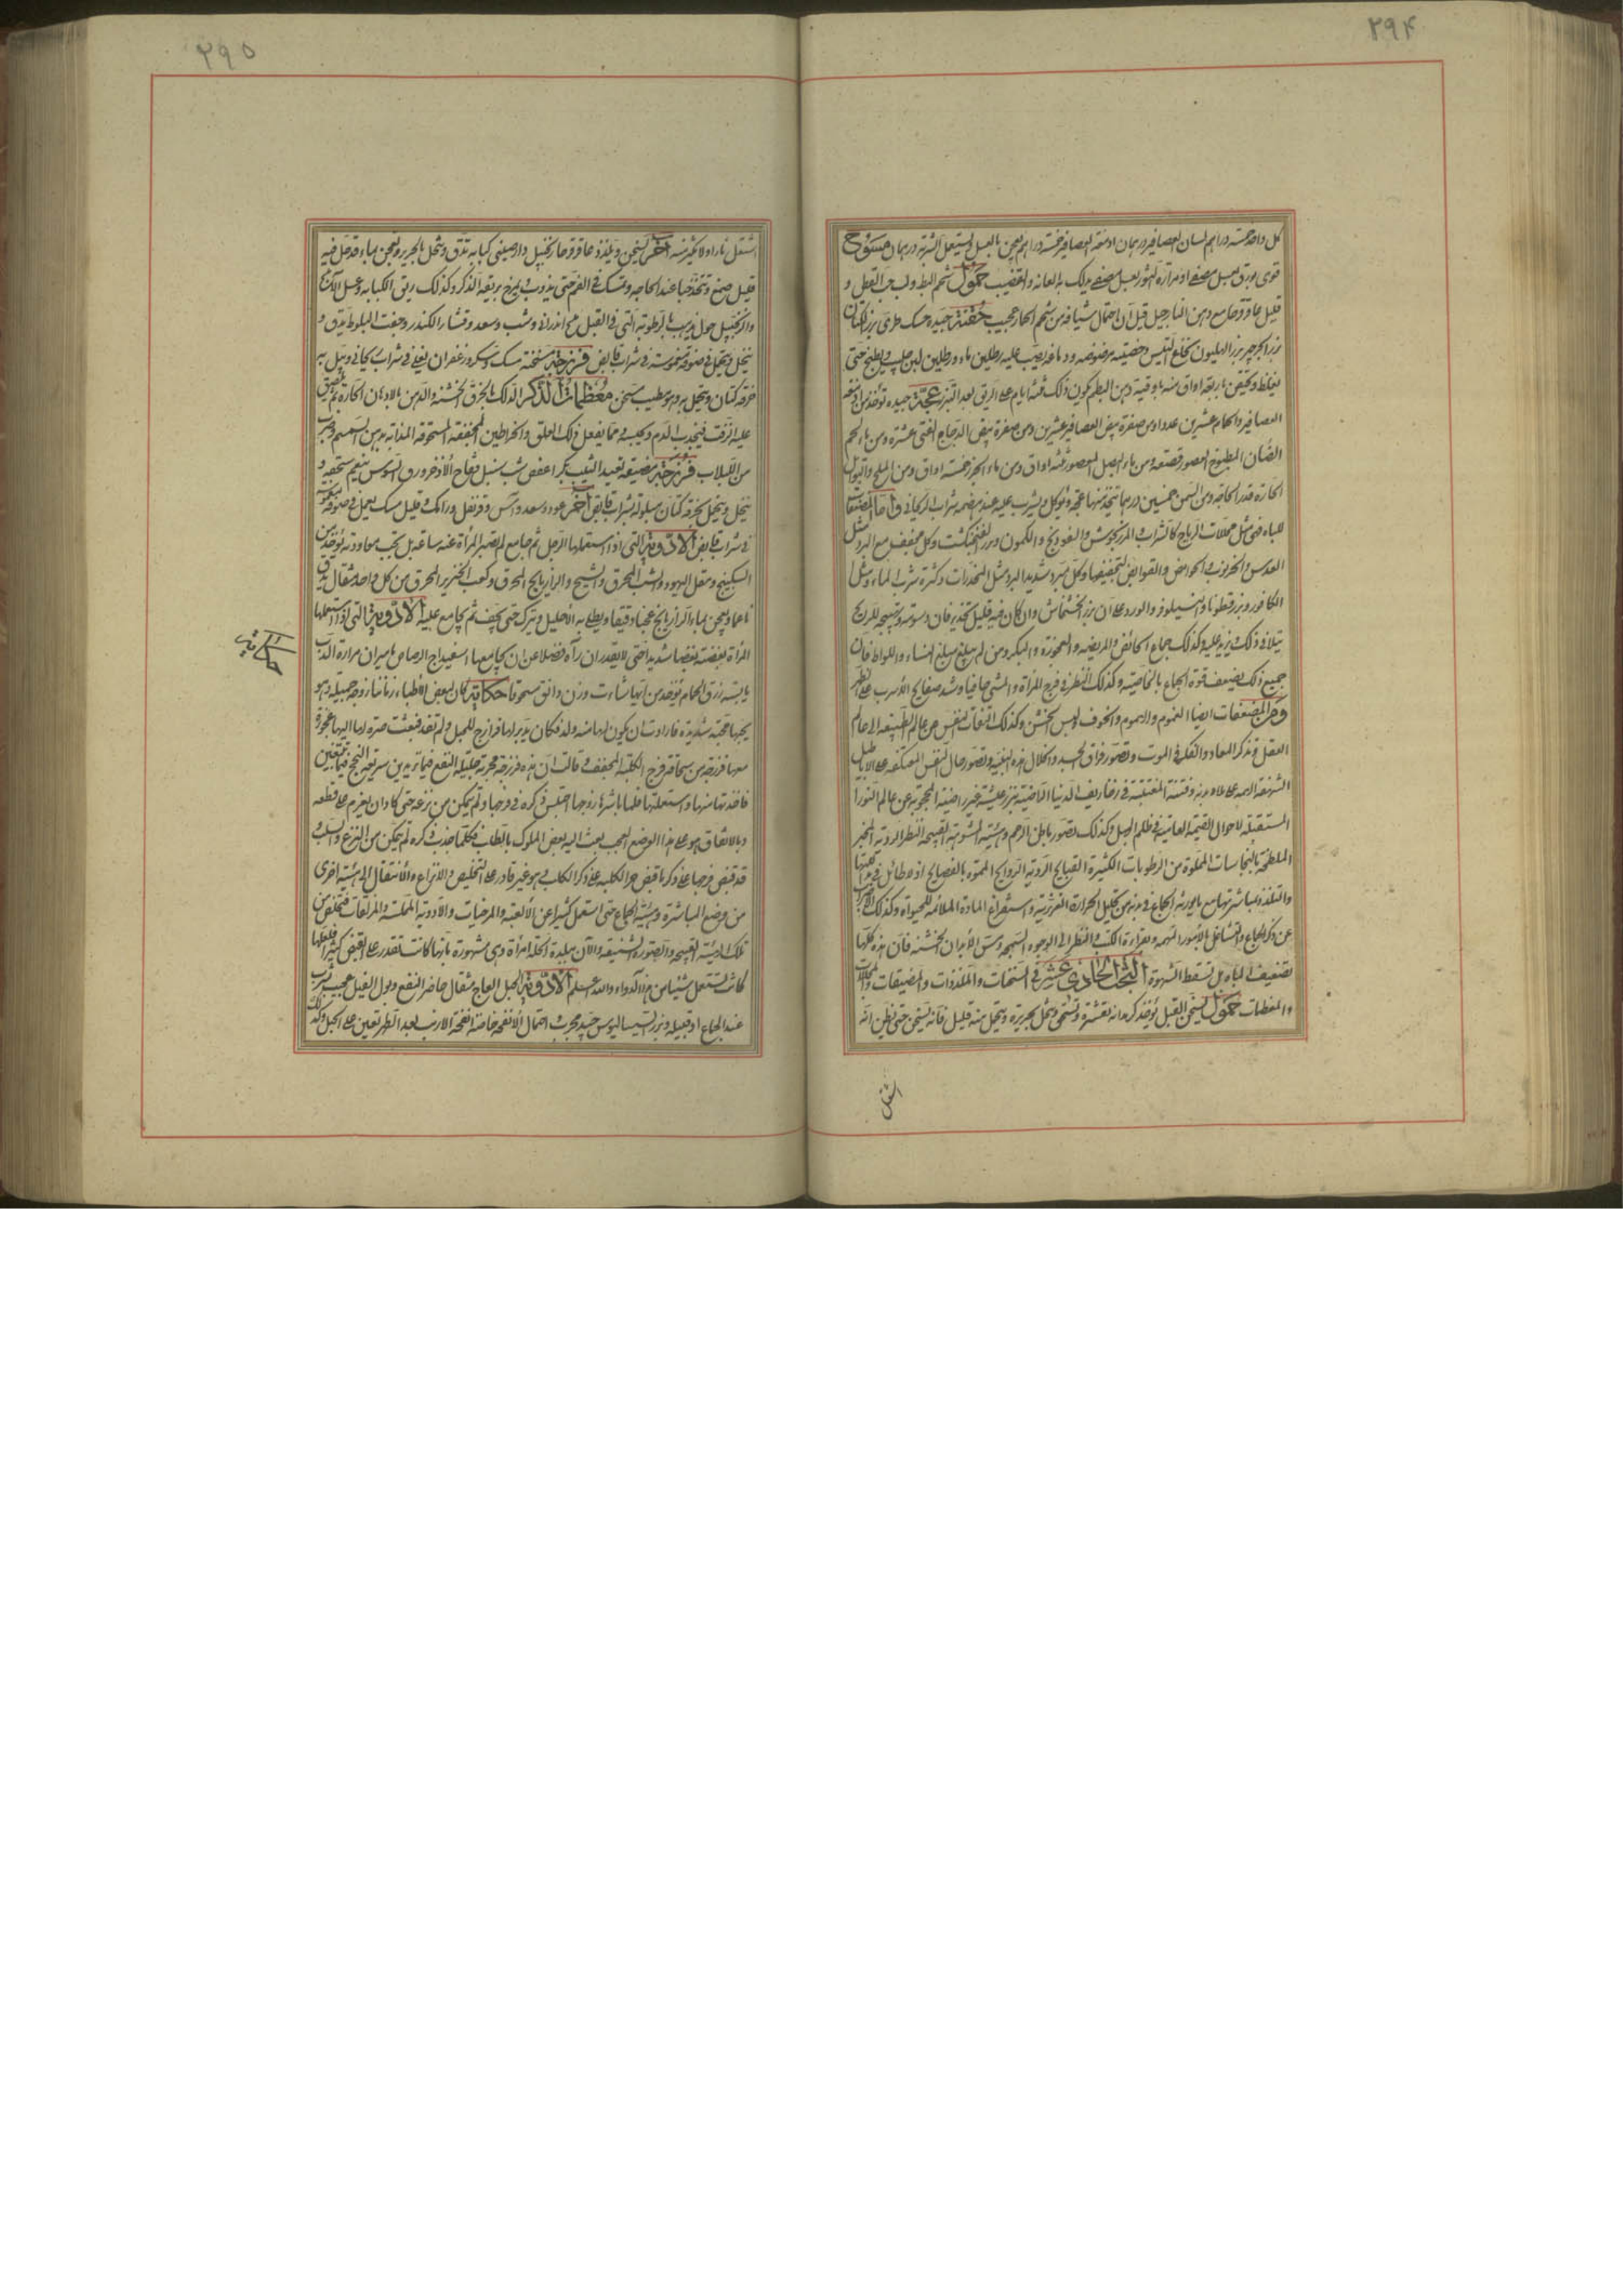 ۲۹۴
كل واحد خمسة دراهم لسان العصافير درهمان ادمغة العصافير خمسة دراهم يعجن بالعسل ويستعمل الشربة درهمان مسوح
قوى بورق بعسل مصفى او مرارة الثور بعسل مصفى يدلك به العانة والقضيب حمول شحم البط ولب حب القطن و
قليل عاقرقرحا مع دهن النارجيل قيل ان احتمال شيافة من شحم الحمار عجيب حقنة جيدة حسك طرى بزر الكتان
بزر الجرجير بزر الهليون نخاع التيس وخصيته مرضوضة ودماغه يصب عليه رطلين ماء ورطلين لبن حليب ويطبخ حتى
يغلظ ويحقن باربعة اواق منه باوقية دهن البطم يكون ذلك ثلثة ايام على الريق بعد التبرز عجة جيدة تؤخذ من ادمغة
العصافير والحمام عشرين عددا ومن صفرة بيض العصافير عشرين ومن صفرة بيض الدجاج اثنتى عشرة ومن ماء لحم
الضان المطبوخ المعصور قصعة ومن ماء البصل المعصور ثلثة اواق ومن ماء الجزر خمسة اواق ومن الملح والتوابل
الحارة قدر الحاجة ومن السمن خمسين درهما تتخذ منها عجة ويؤكل ويشرب عليه عند هضمه شراب الريحانى واما المضعفات
للباه فهى مثل محللات الرياح كالشراب المرزنجوش والفودنج والكمون وبزر الفنجنكشت وكل مجفف مع البرد مثل
العدس والخرنوب الحوامض والقوابض لتجفيفها وكل مبرد شديد البرد مثل المخدرات وكثرة شرب الماء ومثل
الكافور وبزر قطونا والنيلوفر والورد على ان بزر الخشخاش وان كان فيه قليل تخدير فان دسومته وتهييجه للريح
يتلافى ذلك ويزيد عليه وكذلك جماع الحائض والمريضة والعجوزة والبكر ومن لم يبلغ مبلغ النساء واللواط فان
جميع ذلك يضعف قوة الجماع بالخاصية وكذلك النظر فى فرج المراة والمشى حافيا وشد صفايح الاسرب على الظهر
ومن المضعفات ايضا الغموم والهموم والخوف ولبس الخشن وكذلك التفات النفس من عالم الطبيعة الى عالم
العقل وتذكر المعاد والفكر فى الموت وتصور فراق الجسد وانحلال هذه البنية وتصور حال النفس
المستقبلة لاحوال وكذلك تصور باطن الرحم وهيئته المشوهة القبيحة النظر
الملطخة بالنجاسات المملوة من الرطوبات الكثيرة القبايح الردية الروايح
والتلذذ بمباشرتها مع ما يورثه الجماع فى بدنه من تحليل الحرارة الغريزية واستفراغ المادة الملائمة للحيوة وكذلك الاضراب
عن ذكر الجماع والتشاغل بالامور المهمة وقراءة الكتب والنظر الى الوجوه السمجة ومس الابدان الخشنة فان هذه كلها
تضعف الباه بل تسقط الشهوة البحث الحادى عشر فى المسخنات والملذذات والمضيقات والمحللات
والمعظمات حمول يسخن القبل يؤخذ كرمدانة تقشر وتسحق وتنخل بحريرة ويتحمل منه قليل فانه يسخن حتى يظن انه
اشتعل
۲۹۵
اشتعل نارا ولا يكثر منه اخر يسخن ويلذذ عاقرقرحا زنجبيل دارصينى كبابه تدق وتنخل بالحرير وتعجن بماء قد حل فيه
قليل صمغ وتتخذ حبا عند الحاجة وتمسك فى الفم حتى يذوب ويمرخ بريقه الذكر وكذلك ريق الكبابه وعسل
والزنجبيل حمول يذهب بالرطوبة التى فى القبل ملح اندرانى وشب وسعد وقشار الكندر وجفت البلوط يدق و
ينخل ويتحمل فى صوفة مغموسة فى شراب قابض فرزجة مسخنة مسك وسك وزعفران يغلى فى شراب ريحانى ويبل به
خرقة كتان ويتحمل به وهو مطيب مسخن معظمات الذكر الدلك بالخرق الخشنة والدهن بالادهان الحارة ثم يلصق
عليه الزفت فيجذب الدم ويحبسه ومما يفعل ذلك العلق والخراطين المجففة المسحوقة المذابة بدهن السمسم وشرب
من اللبلاب فرزجة مضيقة تعيد الثيب بكرا عفص شب سنبل فقاح الاذخر ورق السوس ينعم سحقه و
ينخل ويتحمل بخرقة كتان مبلولة بشراب قابض اخر عود وسعد وآس وقرنفل ورامك وقليل مسك يعمل فى صوفة مغموسة
فى شراب قابض الادوية التى اذا استعملها الرجل ثم جامع لم تصبر المراة عنه ساعة بل تحب معاودته يؤخذ من
السكبينج ومقل اليهود والشب المحرق والشيح والرازيانج المحرق وكعب الخنزير المحرق من كل واحد مثقال يدق
ناعما ويعجن بماء الرازيانج عجنا دقيقا ويطلى به الاحليل ويترك حتى يجف ثم يجامع عليه الادوية التى اذا استعملها
المراة بغضته بغضا شديدا حتى لا يقدر ان يراه فضلا عن ان يجامعها اسفيداج الرصاص ماميران مرارة الدب
يابسة زرق الحمام يؤخذ من ايها شاءت وزن دانق مسحوقا حكاية كان لبعض الاطباء زمانا زوجة جميلة وهو
يحبها محبة شديدة فارادت ان يكون لها منه ولد فكان يدبر لها فرازج للحبل ولم تفد فبعثت ضرة لها اليها عجوزة
معها فرزجة من سحاقة فرج الكلبة المجففة وقالت ان هذه فرزجة مجربة جليلة النفع فيما تريدين سريعة النجح فيما تبتغين
فاخذتها منها واستعملتها فلما باشرها زوجها احتبس ذكره فى فرجها ولم يتمكن من نزعه حتى كاد ان يعزم على قطعه
وبالاتفاق هو على هذا الوضع العجيب بعث اليه بعض الملوك بالطلب فكلما جذب ذكره لم يتمكن من النزع والسلب
قد قبض فرجها على ذكره ما قبض حر الكلبة على ذكر الكلب فهو غير قادر على التخليص والانتزاع والانتقال الى هيئة اخرى
من وضع المباشرة وهيئة الجماع حتى استعمل كثيرا عن الالعبة والمرخيات والادوية المحللة والمزلقات فتخلص من
تلك الهيئة القبيحة والصورة الشنيعة والان ببلدة الحلة امراة وهى مشهورة بانها كانت تقدر على القبض كثيرا فلعلها
كانت تستعمل شيئا من هذا الدواء والله اعلم الادوية للحبل العاج مثقال حاضر النفع وبول الفيل عجيب شرب
عند الجماع او قبيله وبزر السيساليوس جيد مجرب احتمال الانفحة خاصة انفحة الارنب بعد الطهر تعين على الحبل وكذلك
حكاية